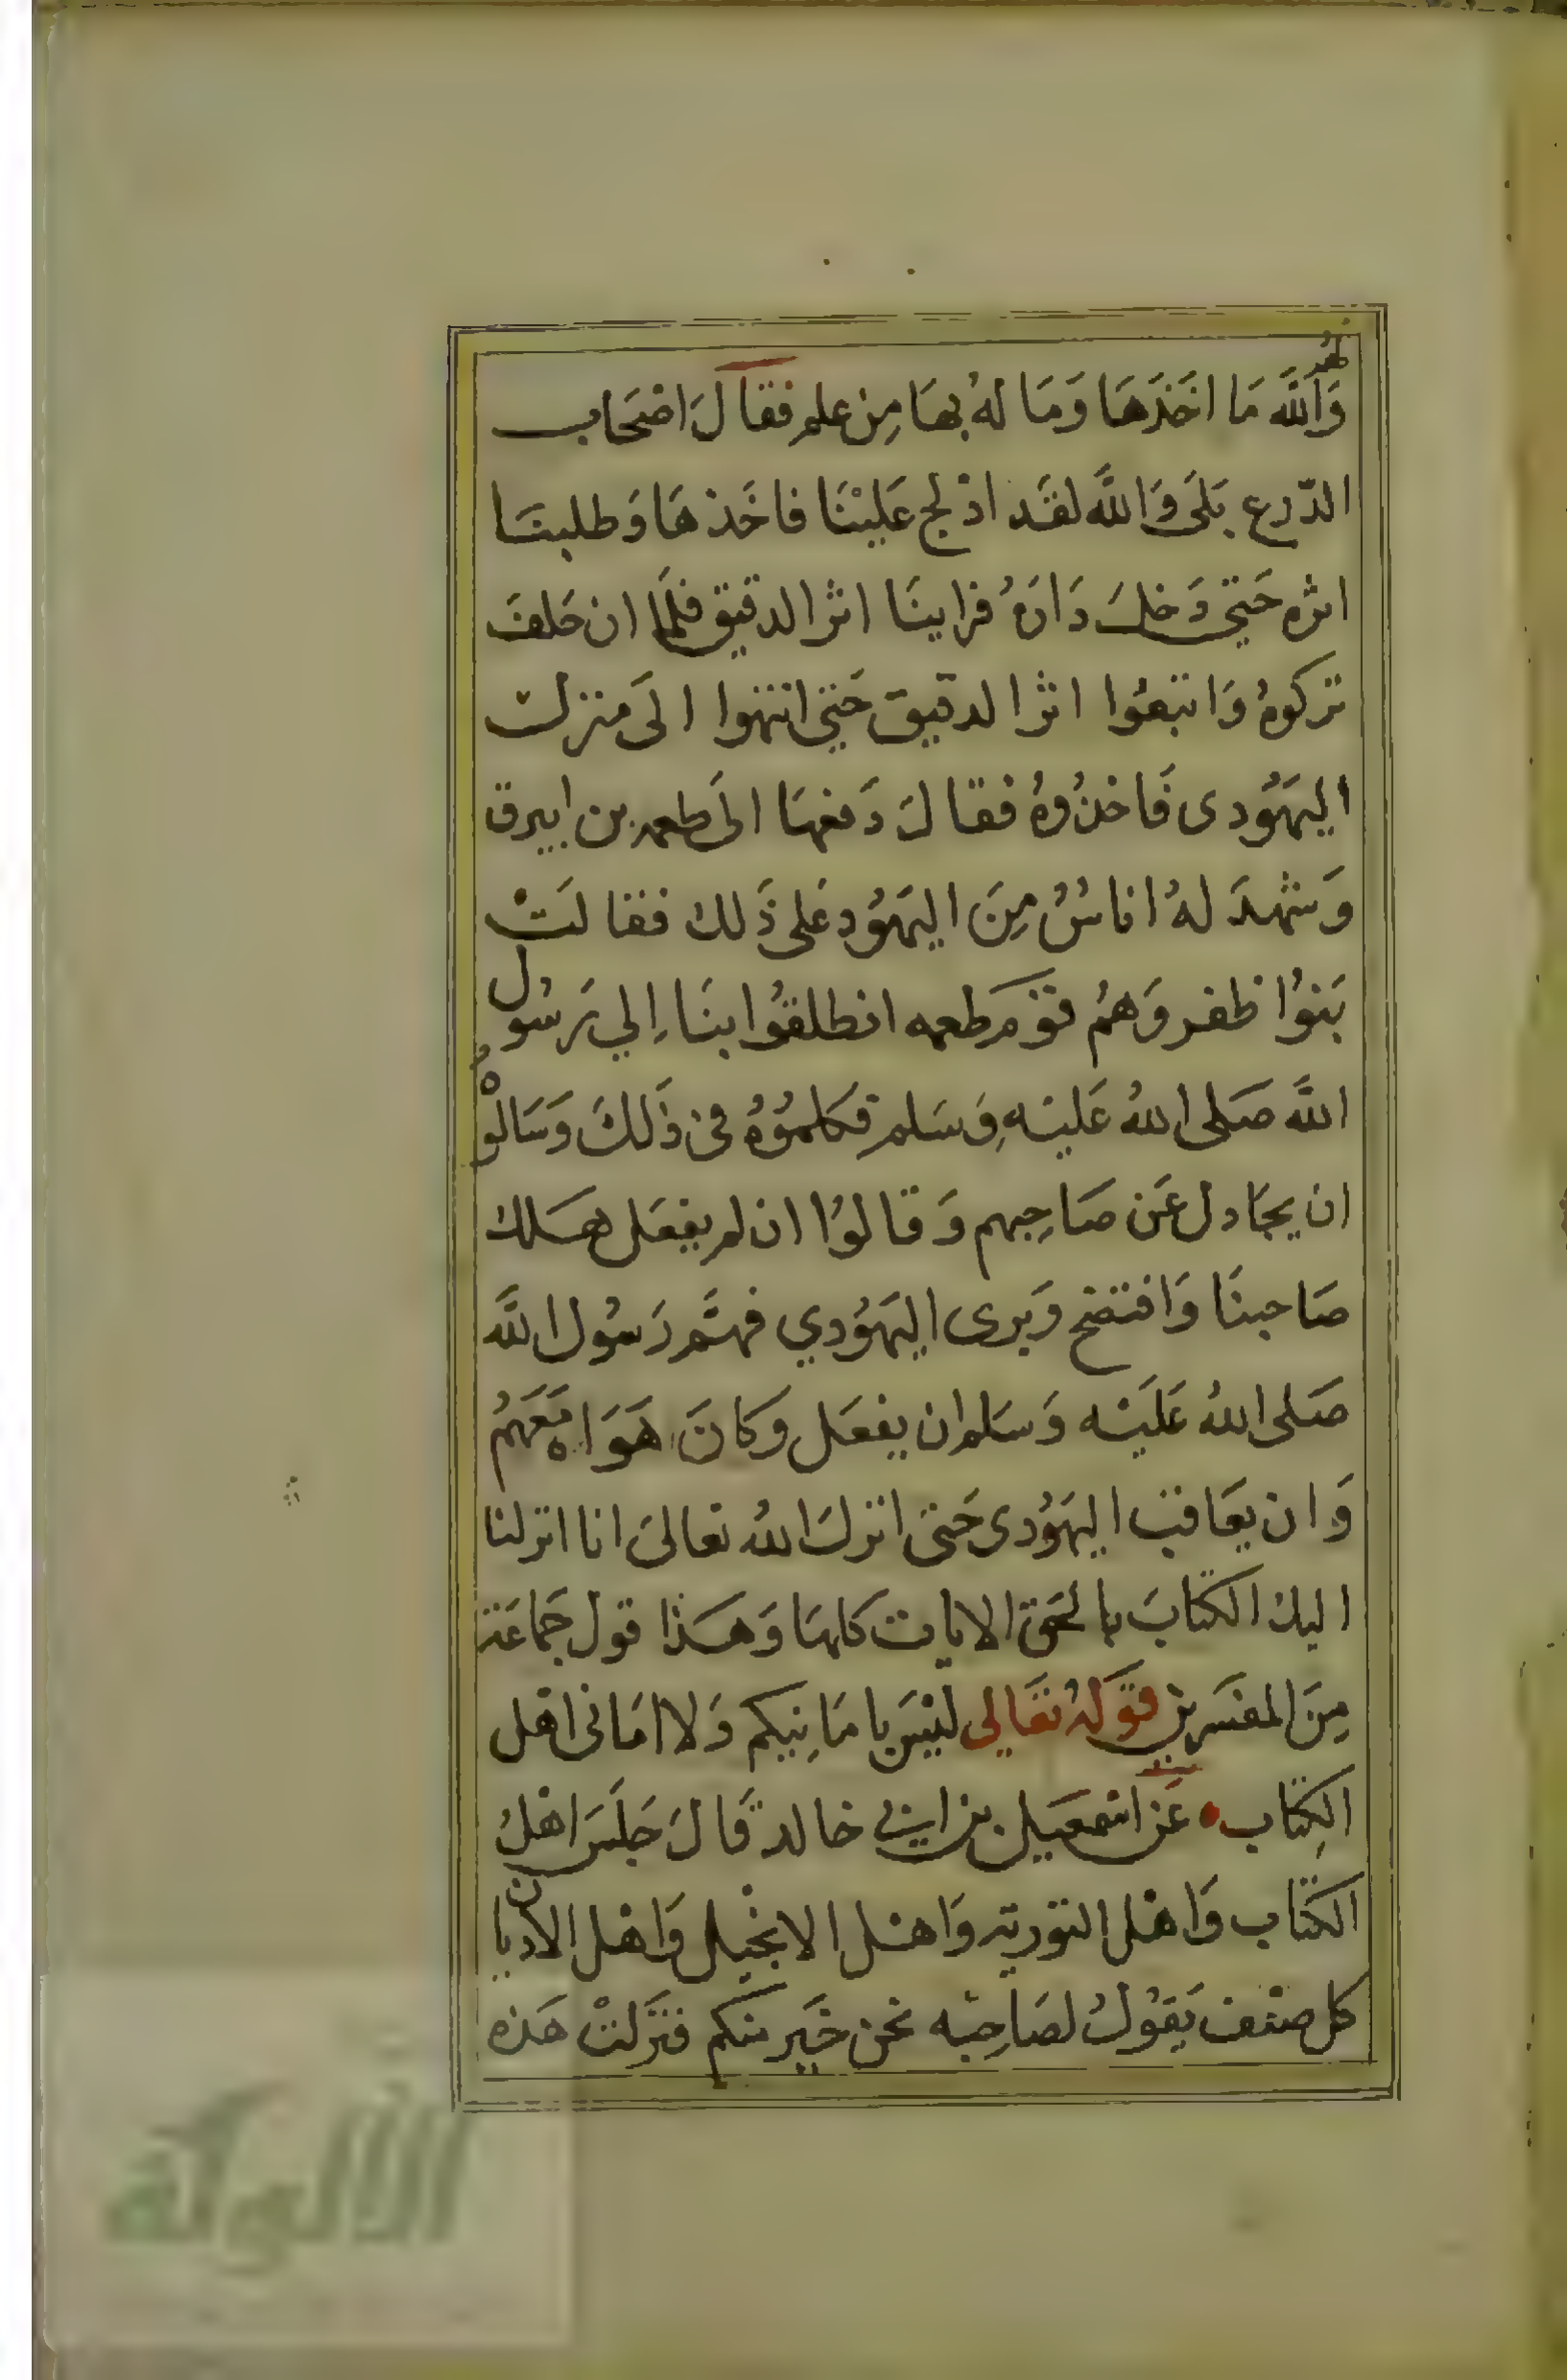 لهم
وَاللَّه مَا اخَذَهَا وَمَا لهُ بهَا مِن علم فقَالَ اصْحَاب
الدّرع بَلَى وَاللَّه لقَد ادْلج عَلَيْنَا فاخَذهَا وَطلبنَا
اثره حَتي دَخلَ دَارهُ فراينَا اثر الدقيق فلمَّا ان حَلفَ
تركوهُ وَاتبعُوا اثر الدقيق حَتي انتهوا الَى منزل
اليهَوُدى فَاخذُوهُ فقالَ دَفعهَا الَى طعمه بن ابيرق
وَشهدَ لهُ اناسُ مِنَ اليهَوُد عَلى ذَلك فقالَتْ
بَنوُا ظفر وَهمُ قوَم طعمه انطلقوُا بنَا اِلي رَسُول
اللَّه صَلى اللهُ عَليْهِ وَسَلم فكلموُهُ في ذَلكَ وَسَالوْهُ
ان يجَادل عَن صَاحِبهم وَقالوُا ان لم يفعَل هَلك
صَاحبنَا وَافتضح وَبرى اليهَوُدي فهمَّ رَسُول اللَّه
صَلى اللهُ عَليْه وَسَلم ان يفعَل وَكانَ هَوَاه مَعَهمُ
وَان يعَاقبَ اليهَوُدى حَتى انزلَ اللهُ تعَالىَ انا انزلنا
اليك الكتَابَ بالحَق الايات كلهَا وَهَذا قول جمَاعَة
مِنَ المفسَرين قوَلهُ تعَالي ليْسَ بامَانِيكم وَلا امَانى اهل
الكِتاب عَن اسْمعَيل بن ابي خالد قَالَ جَلسَ اهْلُ
الكتاب وَاهْل التوريه وَاهْل الانجْيل وَاهْل الاديان
كل صنف يَقوُلُ لصَاحِبه نحن خَير منكم فنزَلتْ هَذه
الألوكة